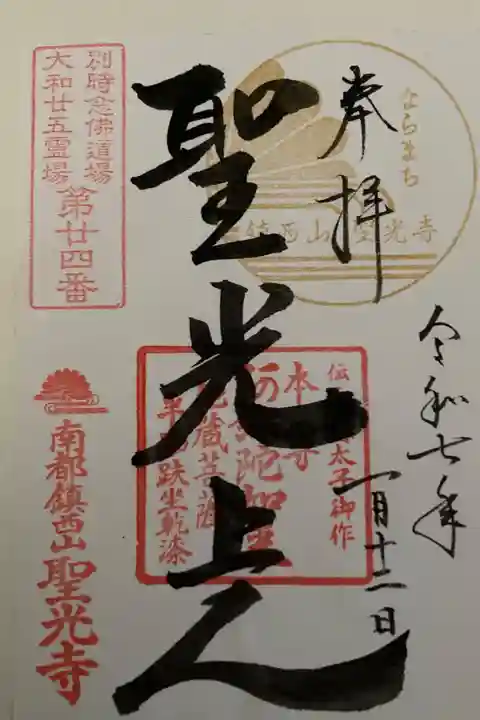 奉拝
ならまち
鎮西山 聖光寺
令和七年
一月十二日
聖光上人
太子御作
本
陀
蔵菩薩
半跏趺坐乾漆
別時念佛道場
大和廿五霊場
第廿四番
南都鎮西山聖光寺